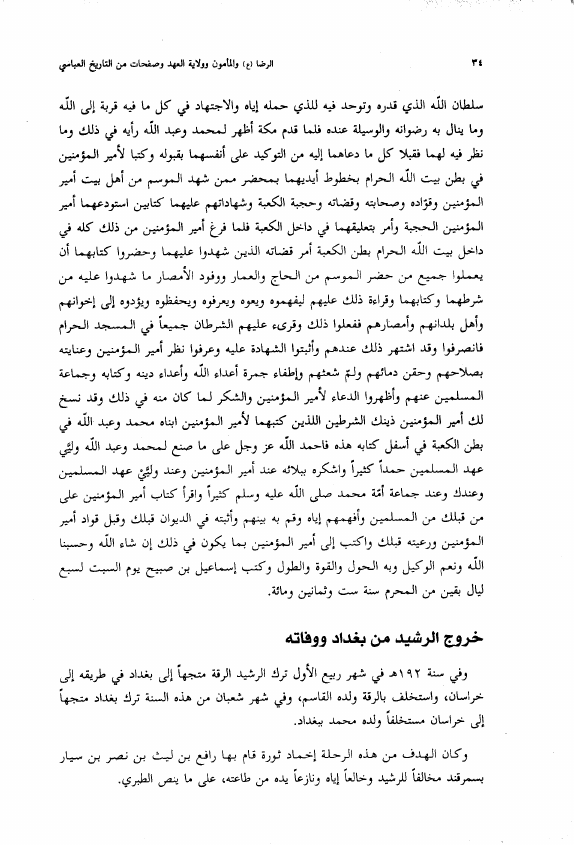 ٣٤
الرضا (ع) والمأمون وولاية العهد وصفحات من التاريخ العباسي
سلطان اللّه الذي قدره وتوحد فيه للذي حمله إياه والاجتهاد في كل ما فيه قربة إلى اللّه
وما ينال به رضوانه والوسيلة عنده فلما قدم مكة أظهر لمحمد وعبد اللّه رأيه في ذلك وما
نظر فيه لهما فقبلا كل ما دعاهما إليه من التوكيد على أنفسهما بقبوله وكتبا لأمير المؤمنين
في بطن بيت اللّه الحرام بخطوط أيديهما بمحضر ممن شهد الموسم من أهل بيت أمير
المؤمنين وقوّاده وصحابته وقضاته وحجبة الكعبة وشهاداتهم عليهما كتابين استودعهما أمير
المؤمنين الحجبة وأمر بتعليقهما في داخل الكعبة فلما فرغ أمير المؤمنين من ذلك كله في
داخل بيت اللّه الحرام بطن الكعبة أمر قضاته الذين شهدوا عليهما وحضروا كتابهما أن
يعملوا جميع من حضر الموسم من الحاج والعمار ووفود الأمصار ما شهدوا عليه من
شرطهما وكتابهما وقراءة ذلك عليهم ليفهموه ويعوه ويعرفوه ويحفظوه ويؤدوه إلى إخوانهم
وأهل بلدانهم وأمصارهم ففعلوا ذلك وقرىء عليهم الشرطان جميعاً في المسجد الحرام
فانصرفوا وقد اشتهر ذلك عندهم وأثبتوا الشهادة عليه وعرفوا نظر أمير المؤمنين وعنايته
بصلاحهم وحقن دمائهم ولمّ شعثهم وإطفاء جمرة أعداء اللّه وأعداء دينه وكتابه وجماعة
المسلمين عنهم وأظهروا الدعاء لأمير المؤمنين والشكر لما كان منه في ذلك وقد نسخ
لك أمير المؤمنين ذينك الشرطين اللذين كتبهما لأمير المؤمنين ابناه محمد وعبد اللّه في
بطن الكعبة في أسفل كتابه هذه فاحمد اللّه عز وجل على ما صنع لمحمد وعبد اللّه وليّي
عهد المسلمين حمداً كثيراً واشكره ببلائه عند أمير المؤمنين وعند وليّيْ عهد المسلمين
وعندك وعند جماعة أمّة محمد صلى اللّه عليه وسلم كثيراً واقرأ كتاب أمير المؤمنين على
من قبلك من المسلمين وأفهمهم إياه وقم به بينهم وأثبته في الديوان قبلك وقبل قواد أمير
المؤمنين ورعيته قبلك واكتب إلى أمير المؤمنين بما يكون في ذلك إن شاء اللّه وحسبنا
اللّه ونعم الوكيل وبه الحول والقوة والطول وكتب إسماعيل بن صبيح يوم السبت لسبع
ليال بقين من المحرم سنة ست وثمانين ومائة.
خروج الرشيد من بغداد ووفاته
وفي سنة ١٩٢هـ في شهر ربيع الأول ترك الرشيد الرقة متجهاً إلى بغداد في طريقه إلى
خراسان، واستخلف بالرقة ولده القاسم، وفي شهر شعبان من هذه السنة ترك بغداد متجهاً
إلى خراسان مستخلفاً ولده محمد ببغداد.
وكان الهدف من هذه الرحلة إخماد ثورة قام بها رافع بن ليث بن نصر بن سيار
بسمرقند مخالفاً للرشيد وخالعاً إياه ونازعاً يده من طاعته، على ما ينص الطبري.